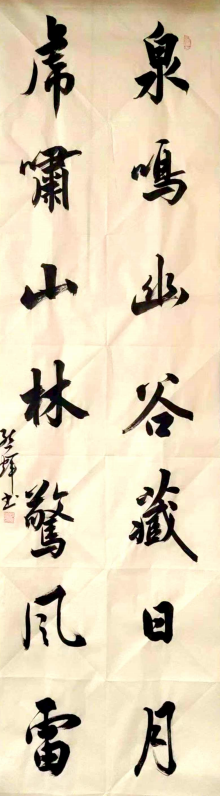 泉鳴幽谷藏日月
虎嘯山林驚風雷